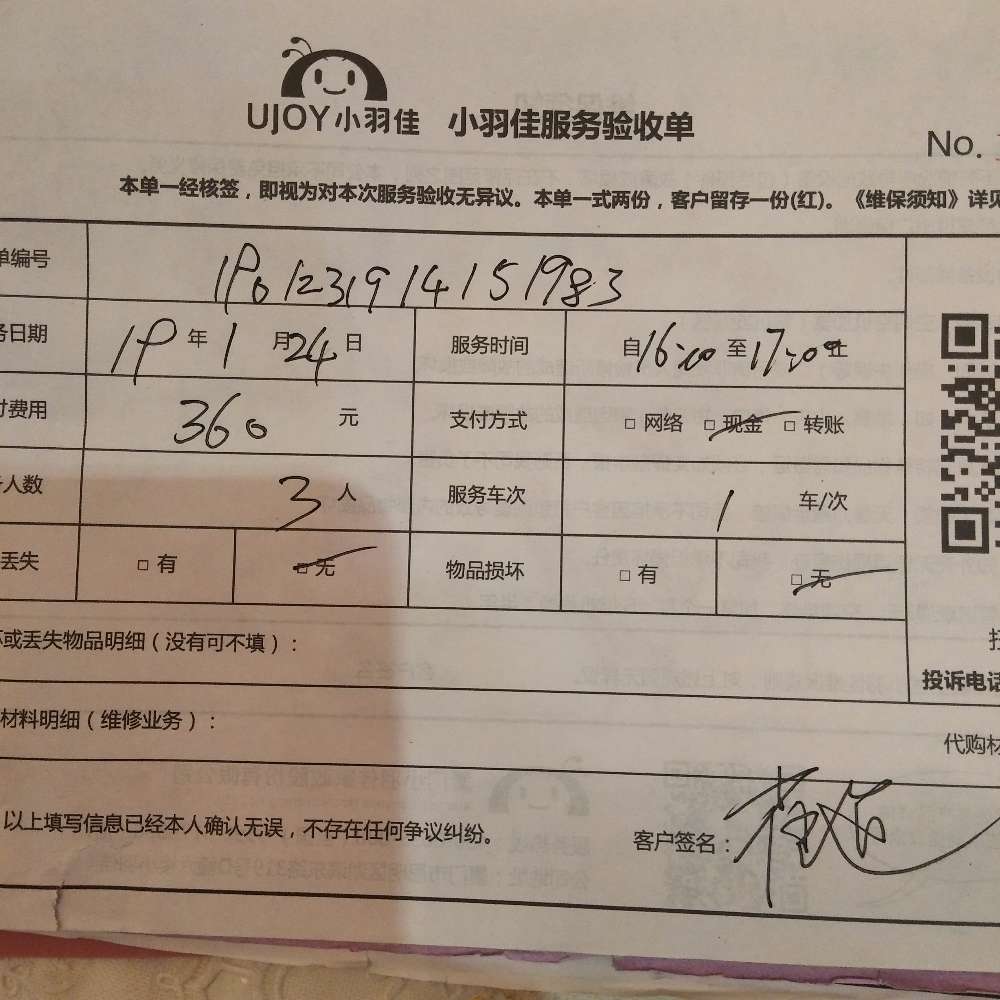 UJOY小羽佳 小羽佳服务验收单
No.
本单一经核签，即视为对本次服务验收无异议。本单一式两份，客户留存一份(红)。《维保须知》详见
单编号 1901231914151983
务日期 19年1月24日 服务时间 自16:00至17:00止
付费用 360元 支付方式 □ 网络 □ 现金 □ 转账
人数 3人 服务车次 1 车/次
丢失 □ 有 □ 无 物品损坏 □ 有 □ 无
坏或丢失物品明细（没有可不填）：
投诉电话
材料明细（维修业务）：
代购材
以上填写信息已经本人确认无误，不存在任何争议纠纷。
客户签名：